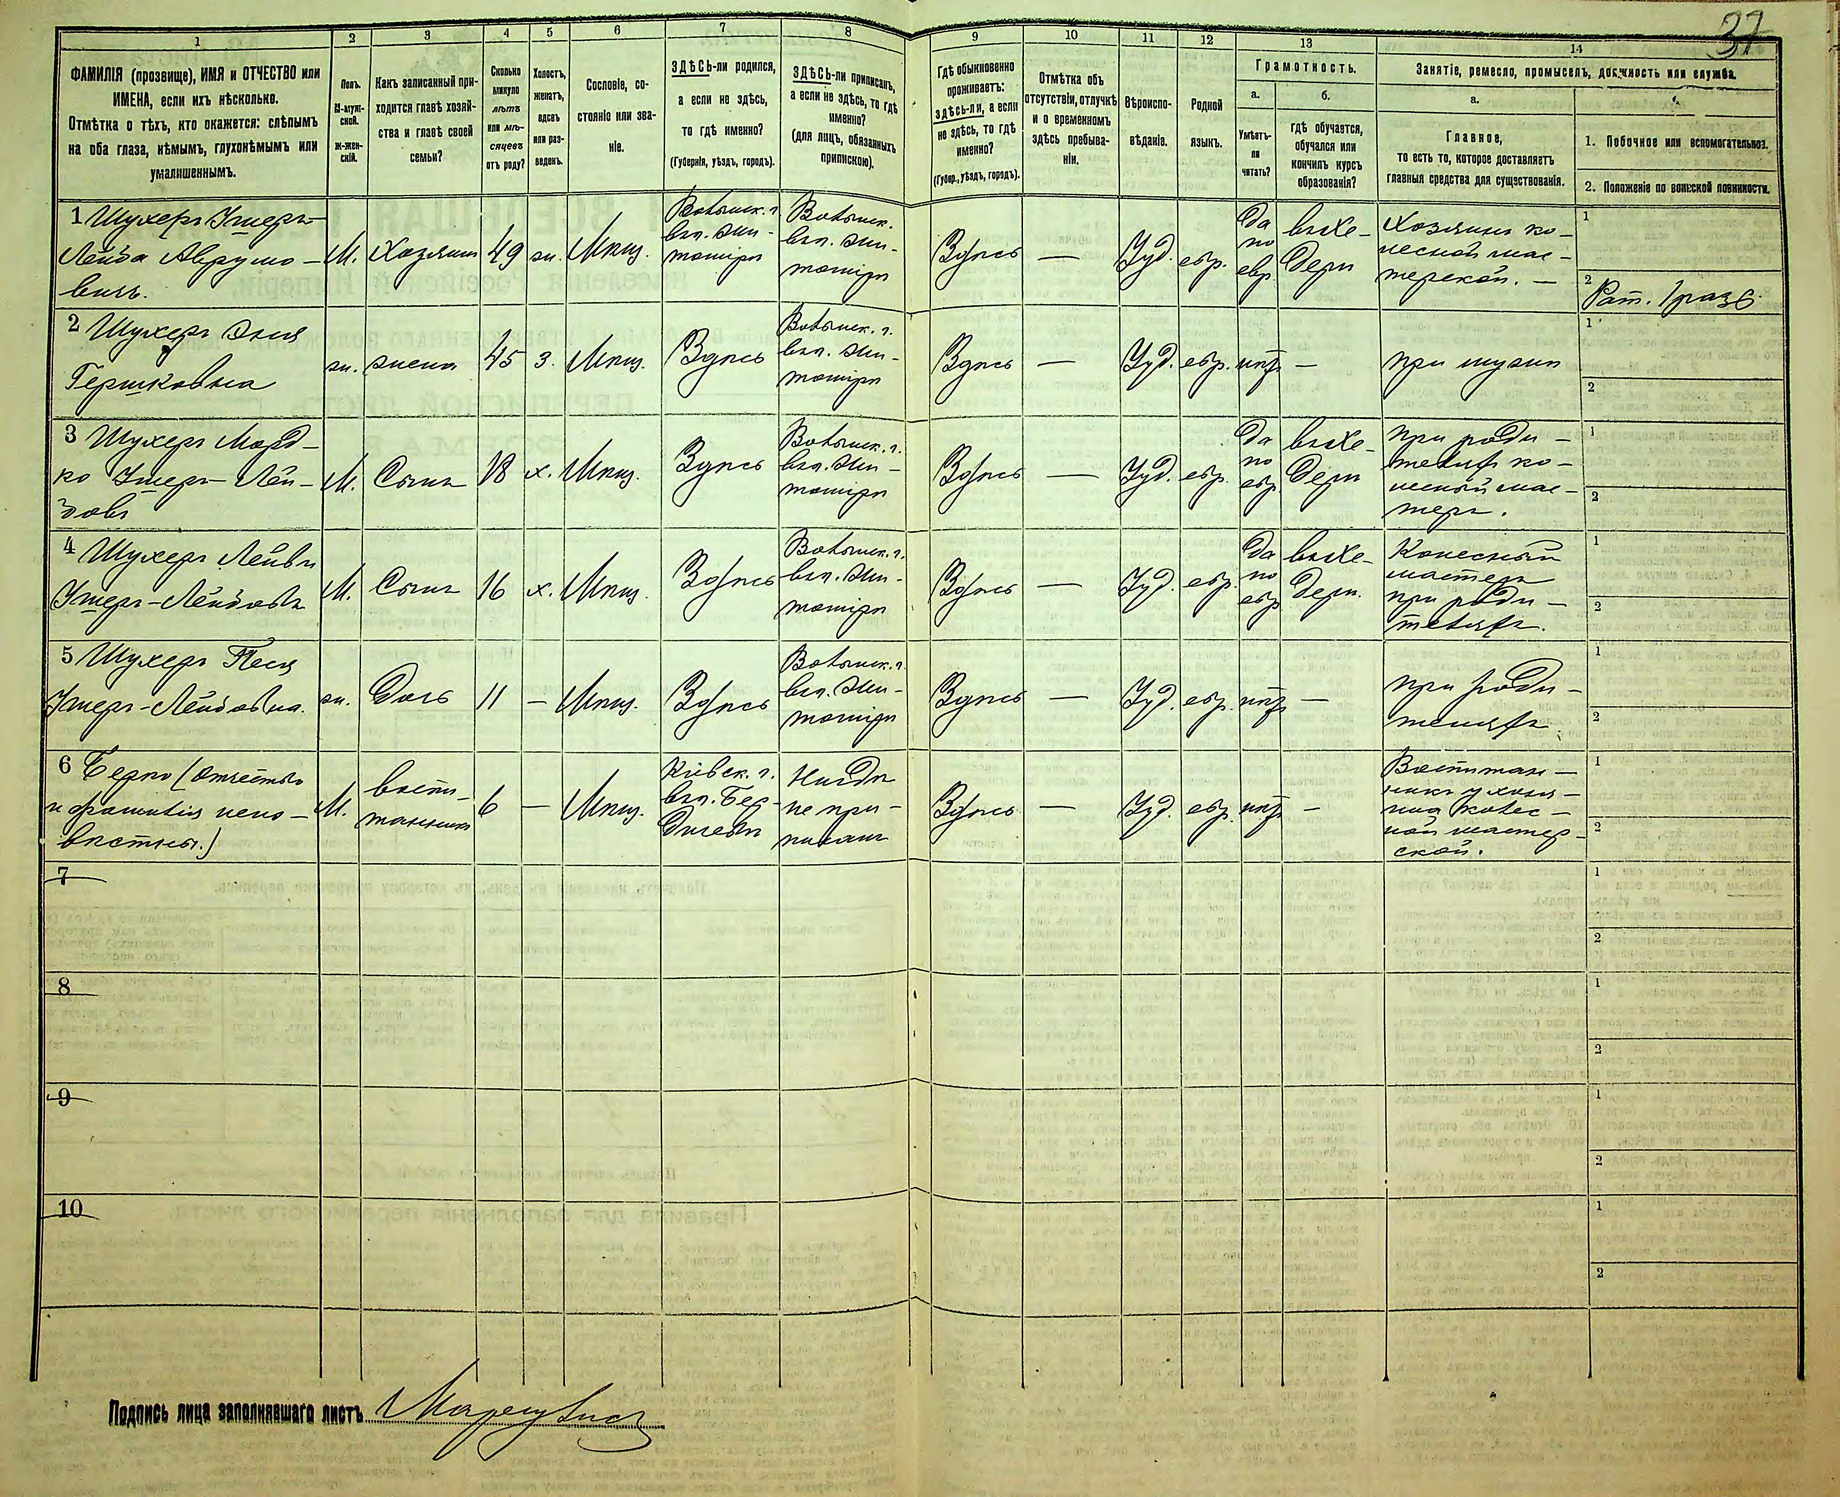 37
1 2 3 4 5 6 7 8 9 10 11 12 13 14
ФАМИЛІЯ (прозвище), ИМЯ и ОТЧЕСТВО или
ИМЕНА, если ихъ нѣсколько.
Отмѣтка о тѣхъ, кто окажется: слѣпымъ
на оба глаза, нѣмымъ, глухонѣмымъ или
умалишеннымъ.
Полъ.
М-муж-
ской.
Ж-жен-
скій.
Какъ записанный при-
ходится главѣ хозяй-
ства и главѣ своей
семьи?
Сколько
минуло
лѣтъ
или мѣ-
сяцевъ
отъ роду?
Холостъ,
женатъ,
вдовъ
или раз-
веденъ.
Сословіе, со-
стояніе или зва-
ніе.
ЗДѢСЬ-ли родился,
а если не здѣсь,
то гдѣ именно?
(Губернія, уѣздъ, городъ).
ЗДѢСЬ-ли приписанъ,
а если не здѣсь, то гдѣ
именно?
(для лицъ, обязанныхъ
припискою).
Гдѣ обыкновенно
проживаетъ:
здѣсь-ли, а если
не здѣсь, то гдѣ
именно?
(Губер., уѣздъ, городъ).
Отмѣтка объ
отсутствіи, отлучкѣ
и о временномъ
здѣсь пребыва-
ніи.
Вѣроиспо-
вѣданіе.
Родной
языкъ.
Грамотность.
а.
Умѣетъ-
ли
читать?
б.
гдѣ обучается,
обучался или
кончилъ курсъ
образованія?
Занятіе, ремесло, промыселъ, должность или служба.
а.
Главное,
то есть то, которое доставляетъ
главныя средства для существованія.
1. Побочное или вспомогательное.
2. Положеніе по воинской повинности.
1 Шухеръ Ушеръ-
Лейба Аврумо-
вичъ.
М.
Хозяинъ
49
ж.
Мѣщ.
Волынск. г.
въ г. Жи-
томірѣ
Волынск.
въ г. Жи-
томірѣ
Здѣсь
—
Іуд.
евр.
Да
по
евр
въ хе-
дерѣ
Хозяинъ ко-
лесной мас-
терской. —
1
2
Рат. 1 разр.
2 Шухеръ Эня
Гершковна
ж.
жена
45
з.
Мѣщ.
Здѣсь
Волынск. г.
въ г. Жи-
томірѣ
Здѣсь
—
Іуд.
евр.
нѣтъ
—
при мужѣ
1
2
3 Шухеръ Морд-
ко Ушеръ-Лей-
бовъ
М.
Сынъ
18
х.
Мѣщ.
Здѣсь
Волынск. г.
въ г. Жи-
томірѣ
Здѣсь
—
Іуд.
евр.
Да
по
евр
въ хе-
дерѣ
при роди-
теляхъ ко-
лесный мас-
теръ.
1
2
4 Шухеръ Лейви
Ушеръ-Лейбовъ
М.
Сынъ
16
х.
Мѣщ.
Здѣсь
Волынск. г.
въ г. Жи-
томірѣ
Здѣсь
—
Іуд.
евр.
Да
по
евр
въ хе-
дерѣ.
Колесный
мастеръ
при роди-
теляхъ.
1
2
5 Шухеръ Песя
Ушеръ-Лейбовна.
ж.
Дочь
11
—
Мѣщ.
Здѣсь
Волынск. г.
въ г. Жи-
томірѣ
Здѣсь
—
Іуд.
евр.
нѣтъ
—
при роди-
теляхъ
1
2
6 Берко (отчество
и фамилія неиз-
вѣстны.)
М.
воспи-
танникъ
6
—
Мѣщ.
Кіевск. г.
въ г. Бер-
дичевѣ
Нигдѣ
не при-
писанъ
Здѣсь
—
Іуд.
евр.
нѣтъ
—
Воспитан-
никъ у хозя-
ина колес-
ной мастер-
ской.
1
2
7
1
2
8
1
2
9
1
2
10
1
2
Подпись лица заполнявшаго листъ